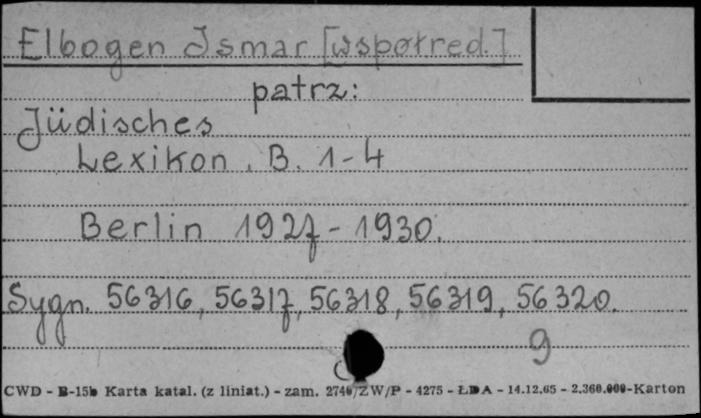 Elbogen Ismar [współred.]
patrz:
Jüdisches
Lexikon. B. 1-4
Berlin 1927-1930.
Sygn. 56316, 56317, 56318, 56319, 56320.
9
CWD - B-15b Karta katal. (z liniat.) - zam. 2746/ZW/P - 4275 - ŁDA - 14.12.65 - 2.360.000-Karton